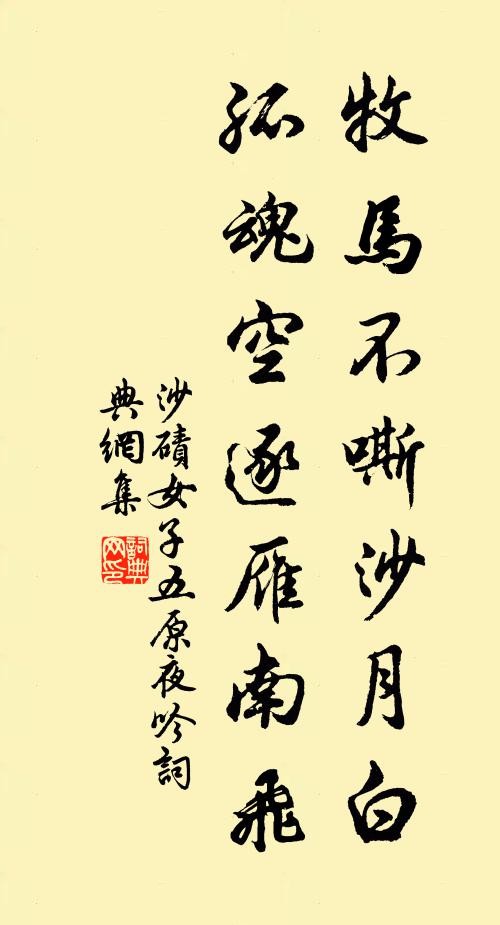 牧馬不嘶沙月白
孤魂空逐雁南飛
沙磧女子五原夜吟詞
典網集
詞典網印